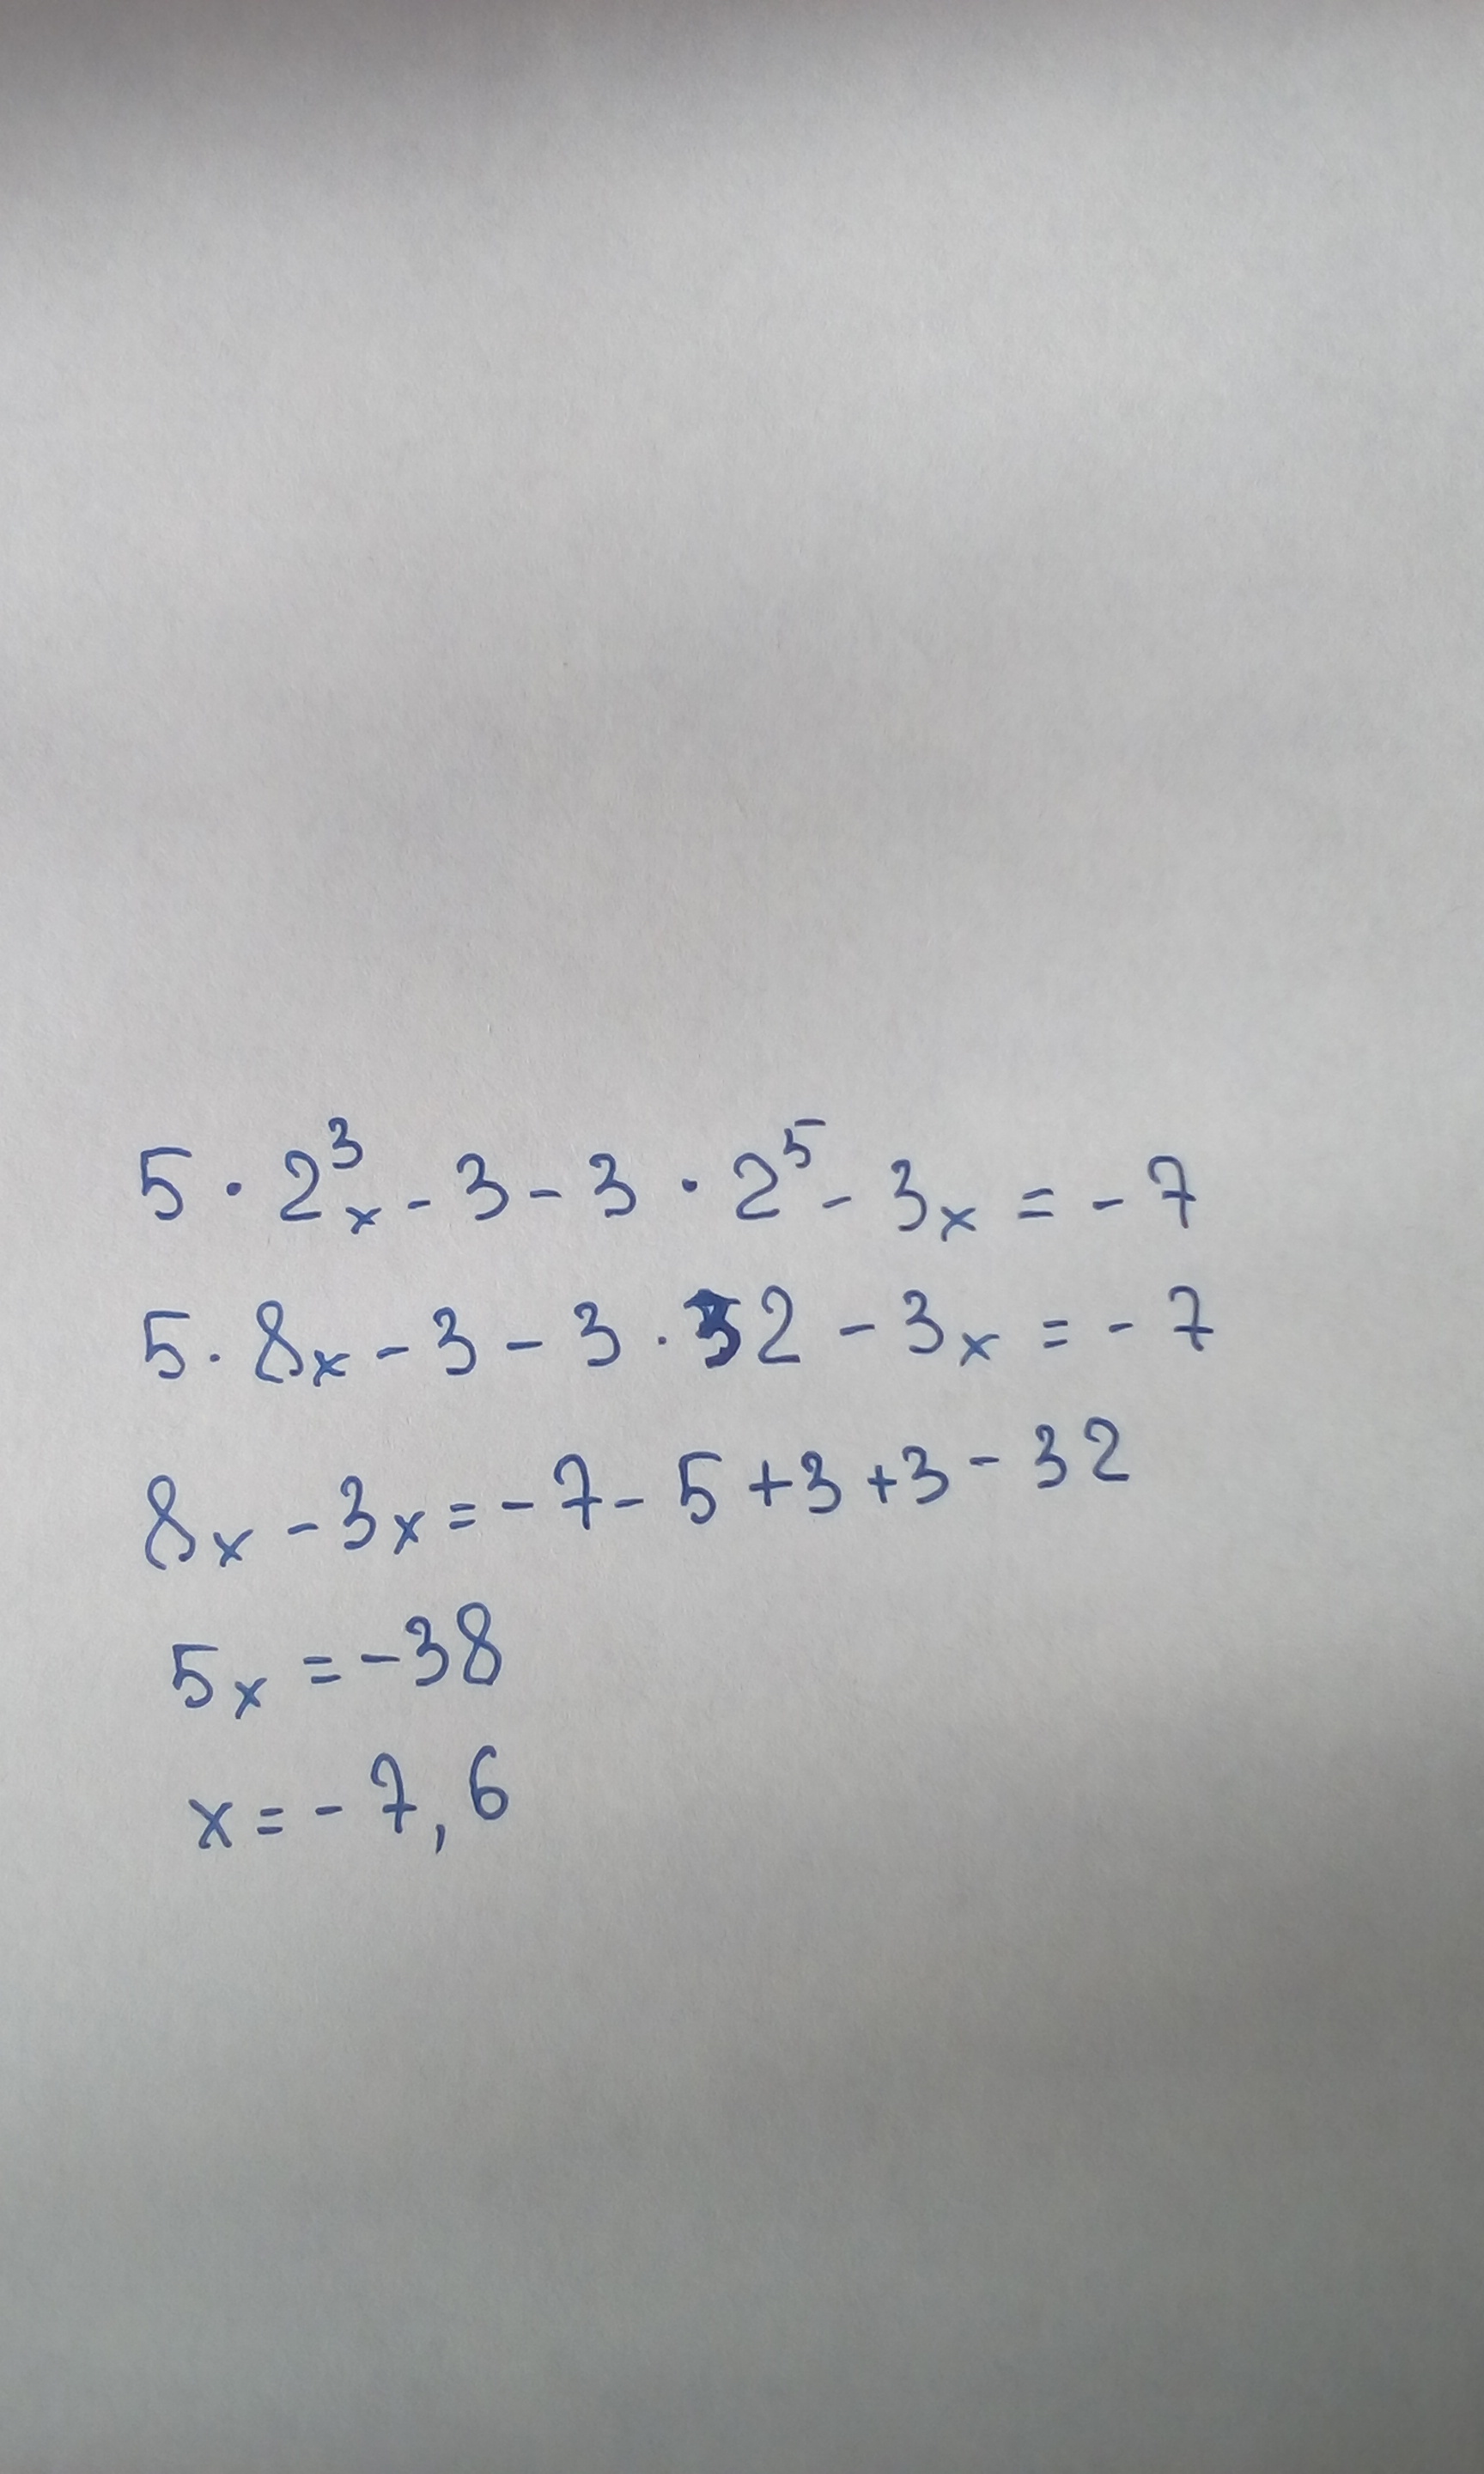 5 · 2³x - 3 - 3 · 2⁵ - 3x = - 7
5 · 8x - 3 - 3 · 32 - 3x = - 7
8x - 3x = - 7 - 5 + 3 + 3 - 32
5x = - 38
x = - 7,6